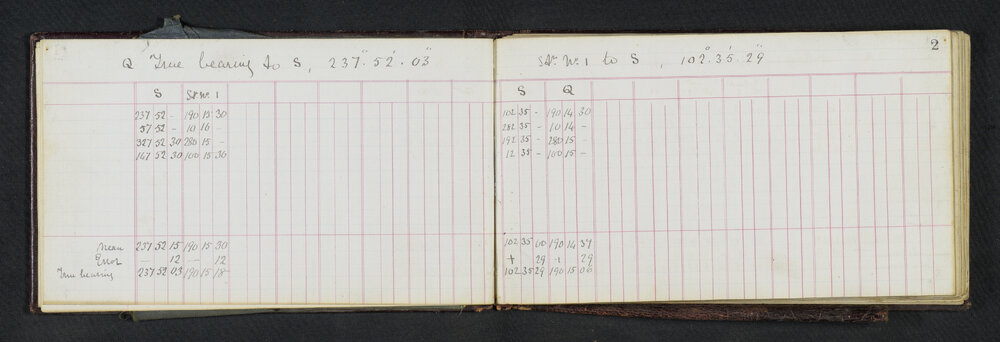 Q True bearing to S, 237° 52' 03"
S Stn No. 1
237 52 - 190 15 30
57 52 - 10 16 -
327 52 30 280 15 -
147 52 30 100 15 30
Mean 237 52 15 190 15 30
Error — 12 — 12
True bearing 237 52 03 190 15 18
2
Stn No. 1 to S, 102° 35' 29"
S Q
102 35 - 190 14 30
282 35 - 10 14 -
192 35 - 280 15 -
12 35 - 100 15 -
102 35 00 190 14 37
+ 29 + 29
102 35 29 190 15 06